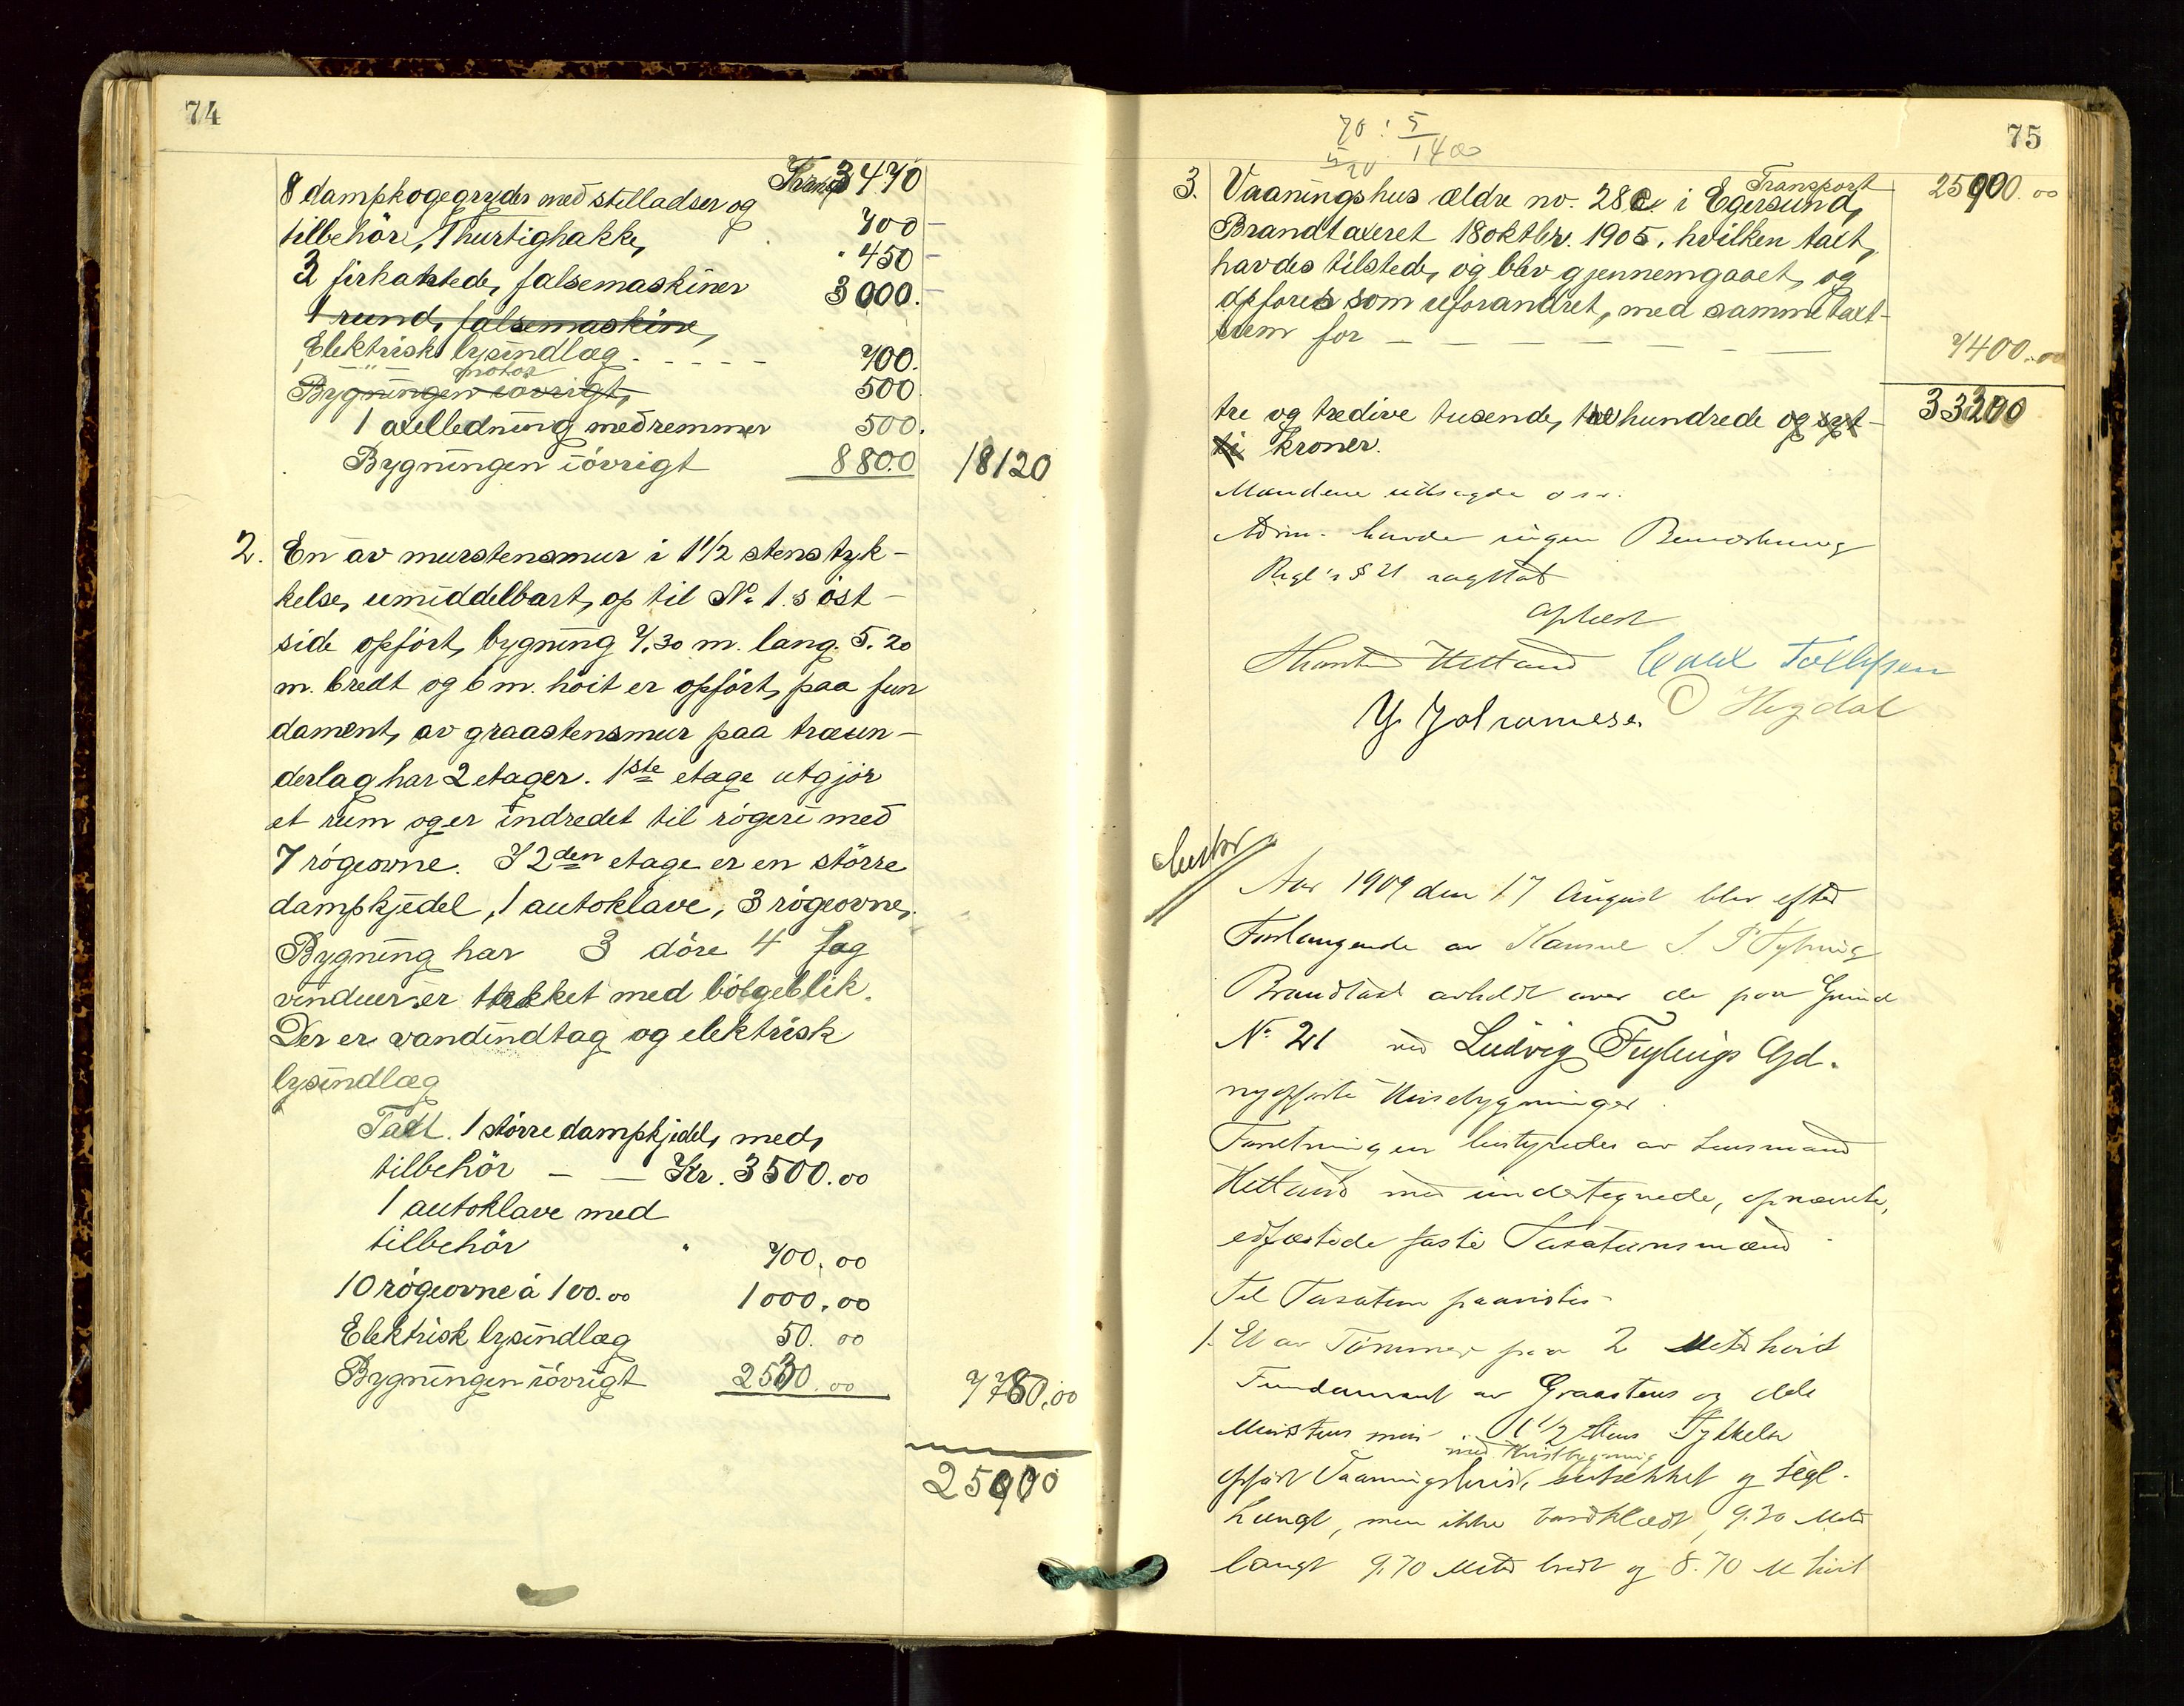 74
Transp 3470
8 dampkogegryder med stilladser og
tilbehör, 1 hurtighakke, 700 –
" 450 –
3 firkantede, falsemaskiner 3000. –
1 rund, falsemaskine,
Elektrisk lysindlæg - - - - - 700.
" — " — motor
Bygningen iövrigt, 500
1 axelledning med remmer 500.
Bygningen iövrigt 8800 18120
2. En av murstensmur i 1 1/2 stens tyk-
kelse, umiddelbart, op til No 1.s öst-
side opfört, bygning 7.30 m. lang. 5.20
m. bredt og 6 m. höit er opfört, paa fun
dament, av graastensmur paa træun-
derlag har 2 etager. 1ste etage utgjör
et rum og er indredet til rögeri med
7 rögeovne. I 2den etage er en större
dampkjedel, 1 autoklave, 3 rögeovne.
Bygning har 3 döre 4 fag
vinduer, er tækket med bölgeblik.
Der er vandindtag og elektrisk
lysindlæg
Taxt. 1 större dampkjedel, med,
tilbehör — — Kr. 3500.00
1 autoklave med
tilbehör " 700.00
10 rögeovne á 100.00 1000.00
Elektrisk lysindlæg 50.00
Bygningen iövrigt 2530.00 7780.00
25900
75
70 : 5
1400
Transport
3. Vaaningshus ældre no. 28 i Egersund, 25900.00
Brandtaxeret 18 oktbr. 1905, hvilken taxt,
havdes tilstede, og blev gjennemgaaet, og
opføres som uforandret, med samme taxt-
sum for — — — — — — — 7400.00
33300
tre og tredive tusende, tre hundrede og syt-
ti kroner.
Mændene utsagde o s v.
Adm. havde ingen Bemærkning
Regl's § 21 iagttat
Oplæst
Hetland Carl Tollefsen
Hegdal
Aar 1909 den 17 August blev efter
Forlangende av
Brandtaxt avholdt over de paa Grund
No 21 ved Ludvig Feylings Gd.
nyopførte Husebygninger.
Forretningen bestyredes av Lensmand
Hetland med undertegnede, opnævnte,
edfæstede faste Taxationsmænd
Til Taxation paavistes
1. Et av Tømmer paa 2 Meter høit
Fundament av Graastens og dels
Murstens mur i 1 1/2 Stens Tykkelse
med Kvistbygning
opført Vaaningshus, og tegl-
hængt, men ikke bordklædt, 9.30 Meter
langt 9.70 Meter bredt og 8.70 M høit